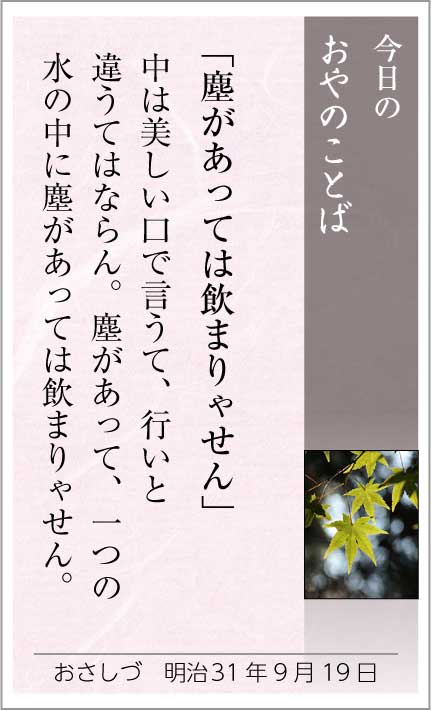 今日の
おやのことば
「塵があっては飲まりゃせん」
中は美しい口で言うて、行いと
違うてはならん。塵があって、一つの
水の中に塵があっては飲まりゃせん。
おさしづ　明治31年9月19日